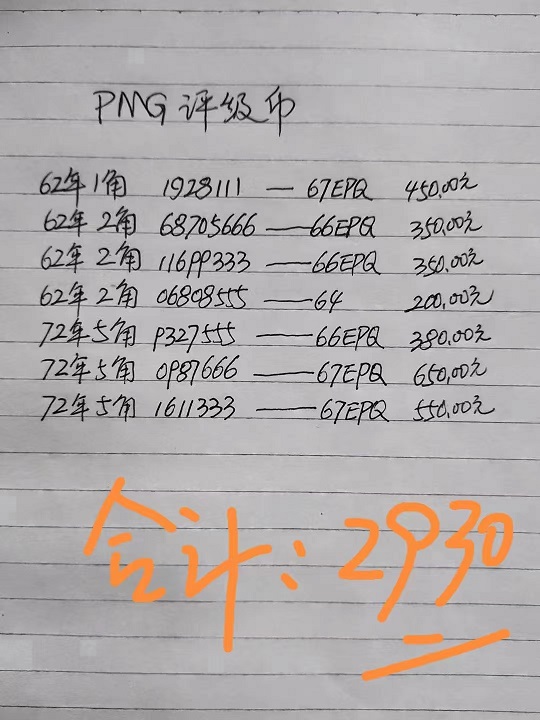 PMG评级币
62年1角 1928111 — 67EPQ 450.00元
62年2角 68705666 — 66EPQ 350.00元
62年2角 11699333 — 66EPQ 350.00元
62年2角 06808555 — 64 200.00元
72年5角 9327555 — 66EPQ 380.00元
72年5角 0987666 — 67EPQ 650.00元
72年5角 1611333 — 67EPQ 550.00元
合计:2930